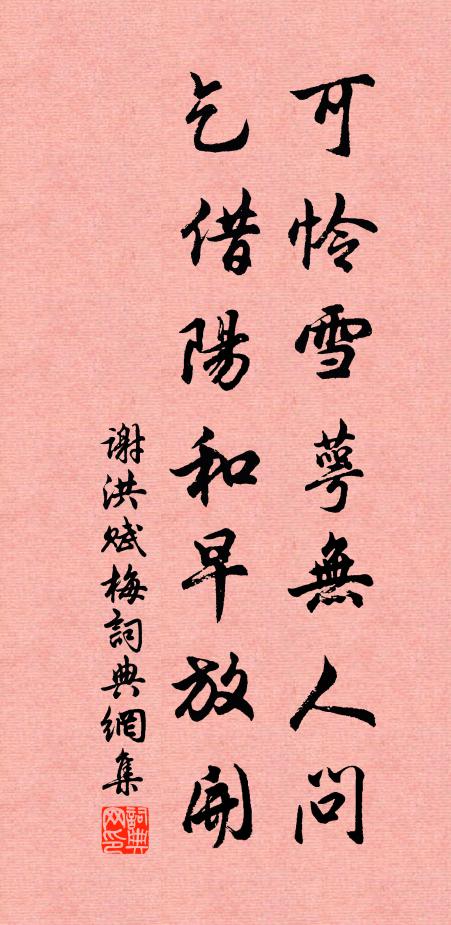 可怜雪萼無人問
乞借陽和早放開
谢洪赋梅詞典網集
詞典網印